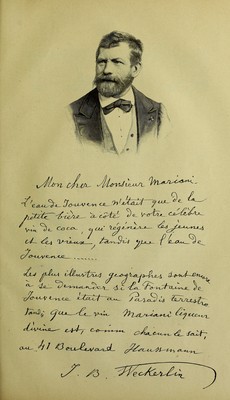 Mon cher Monsieur Mariani.
L'eau de Jouvence n'était que de la
petite bière à côté de votre célèbre
vin de coca qui régénère les jeunes
et les vieux, tandis que l'eau de
Jouvence .......
Les plus illustres geographes sont encore
à se demander si la Fontaine de
Jouvence était au Paradis terrestre
tandis que le vin Mariani liqueur
divine est, comm chacun le sait,
au 41 Boulevard Haussmann
J. B. Weckerlin